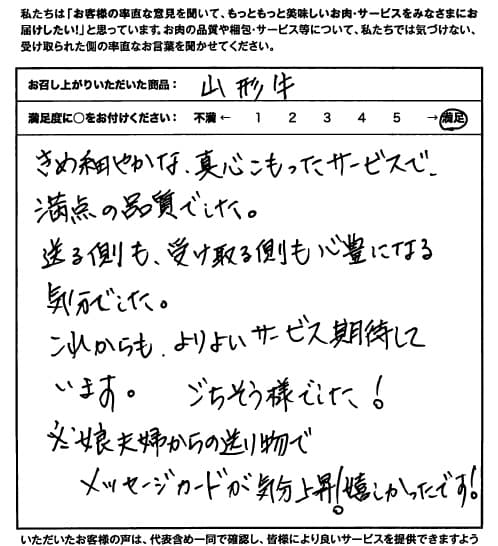 私たちは「お客様の率直な意見を聞いて、もっともっと美味しいお肉・サービスをみなさまにお
届けしたい！」と思っています。お肉の品質や梱包・サービス等について、私たちでは気づけない、
受け取られた側の率直なお言葉を聞かせてください。
お召し上がりいただいた商品： 山形牛
満足度に○をお付けください： 不満 ← 1 2 3 4 5 → 満足
きめ細やかな、真心こもったサービスで、
満点の品質でした。
送る側も、受け取る側も心豊になる
気分でした。
これからも、よりよいサービス期待して
います。 ごちそう様でした！
※娘夫婦からの送り物で
メッセージカードが気分上昇！嬉しかったです！
いただいたお客様の声は、代表含め一同で確認し、皆様により良いサービスを提供できますよう